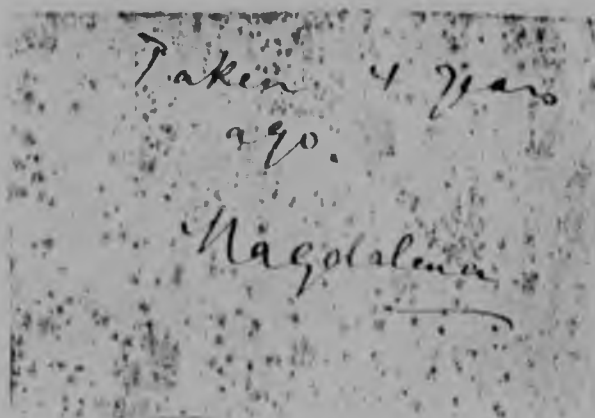 Taken 4 years
ago.
Magdalena